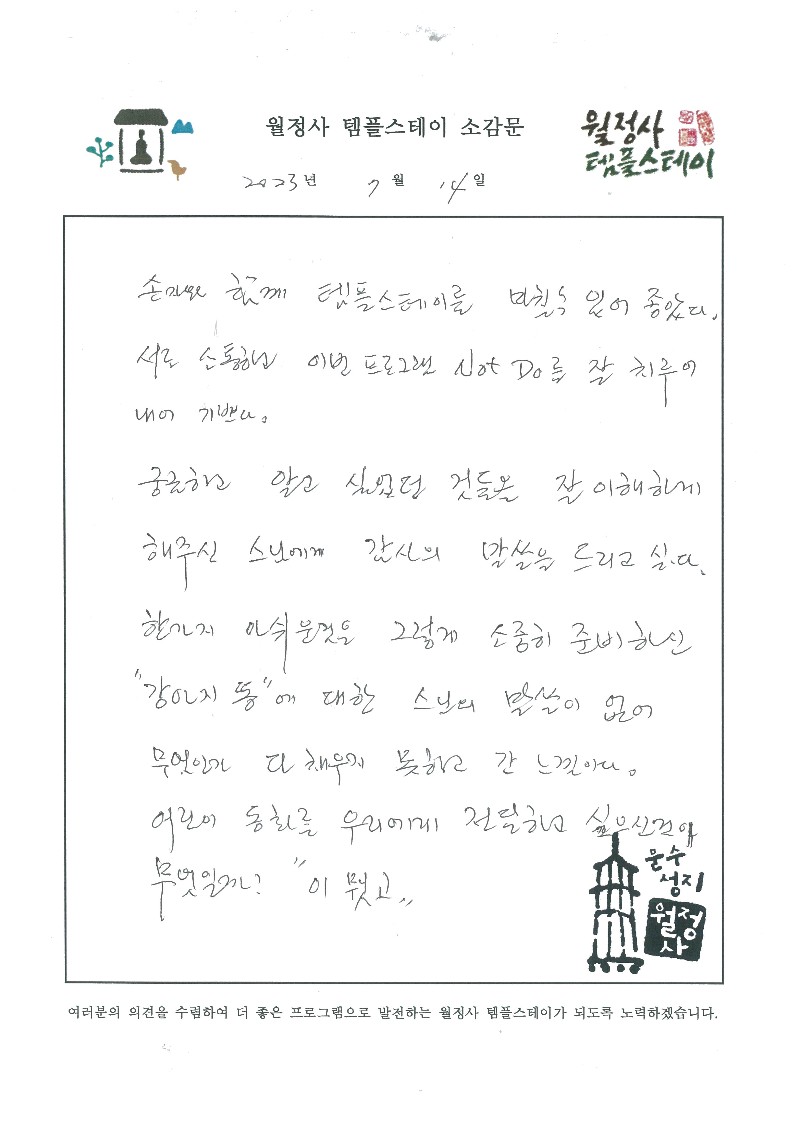 월정사 템플스테이 소감문
월정사
템플스테이
2023년 7월 14일
손자와 함께 템플스테이를 마칠수 있어 좋았다.
서로 소통하며 이번 프로그램 Not Do를 잘 치루어
내어 기쁘다.
궁금하고 알고 싶었던 것들을 잘 이해하게
해주신 스님에게 감사의 말씀을 드리고 싶다.
한가지 아쉬운것은 그렇게 소중히 준비하신
"강아지 똥"에 대한 스님의 말씀이 없어
무엇인가 다 채우지 못하고 간 느낌이다.
어린이 동화를 우리에게 전달하고 싶으신것이
무엇일까? "이 뭣고"
문수
성지
월정
사
여러분의 의견을 수렴하여 더 좋은 프로그램으로 발전하는 월정사 템플스테이가 되도록 노력하겠습니다.